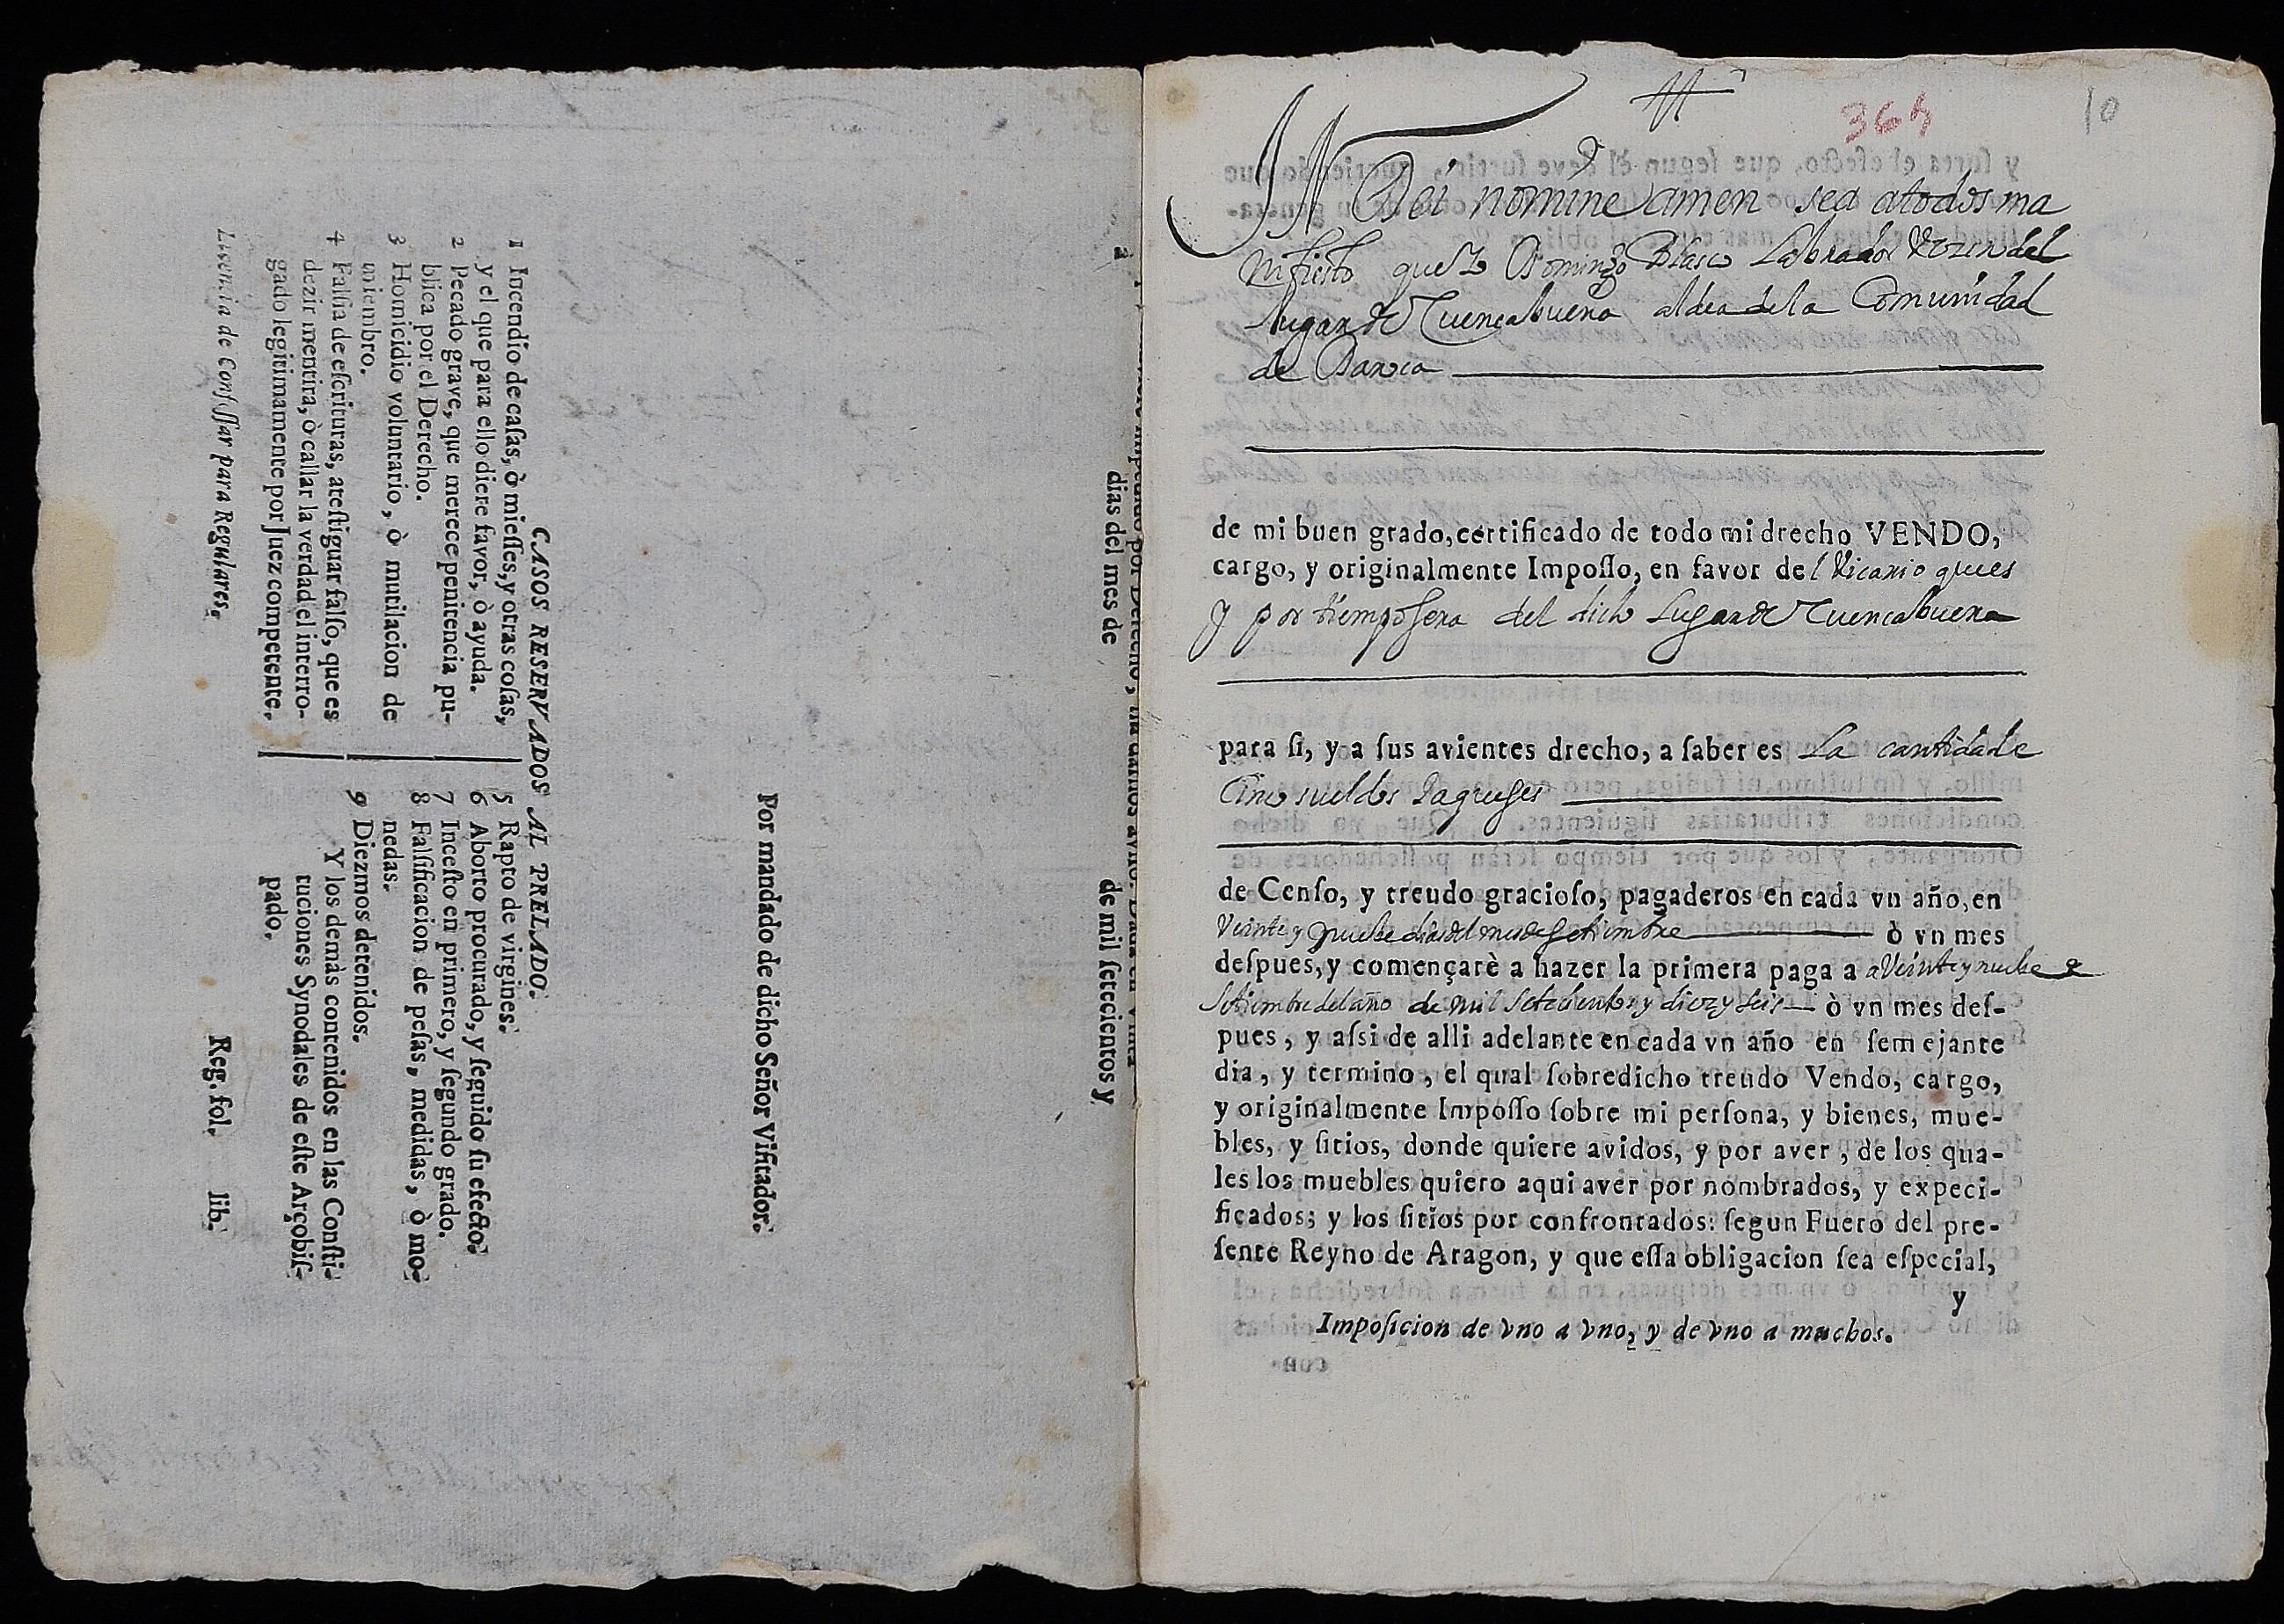 dias del mes de de mil setecientos y
Por mandado de dicho Señor Visitador.
CASOS RESERVADOS AL PRELADO.
1 Incendio de casas, ò miesses, y otras cosas,
y el que para ello diere favor, ò ayuda.
2 Pecado grave, que merece penitencia pu-
blica por el Derecho.
3 Homicidio voluntario, ò mutilacion de
miembro.
4 Falsia de escrituras, atestiguar falso, que es
dezir mentira, ò callar la verdad el interro-
gado legitimamente por Juez competente.
5 Rapto de virgines.
6 Aborto procurado, y seguido su efecto.
7 Incesto en primero, y segundo grado.
8 Falsificacion de pesas, medidas, ò mo-
nedas.
9 Diezmos detenidos.
Y los demàs contenidos en las Consti-
tuciones Synodales de este Arçobis-
pado.
Licencia de Confessar para Regulares.
Reg. fol. lib.
365
10
IN Dei nomine amen sea atodos ma
nifiesto que Yo Domingo Blasco Labrador Vezin del
lugar de Cuencabuena aldea dela Comunidad
de Daroca
de mi buen grado, certificado de todo mi drecho VENDO,
cargo, y originalmente Imposso, en favor del Vicario que es
y por tiempo sera del dicho Lugar de Cuencabuena
para si, y a sus avientes drecho, a saber es La cantidad de
Cinco sueldos Jaqueses
de Censo, y treudo gracioso, pagaderos en cada vn año, en
Veinte y nuebe dias del mes de Setiembre ò vn mes
despues, y començarè a hazer la primera paga a a Veinte y nuebe de
Setiembre del año de mil Setecientos y diez y seis ò vn mes des-
pues, y assi de alli adelante en cada vn año en semejante
dia, y termino, el qual sobredicho treudo Vendo, cargo,
y originalmente Imposso sobre mi persona, y bienes, mue-
bles, y sitios, donde quiere avidos, y por aver, de los qua-
les los muebles quiero aqui aver por nombrados, y expeci-
ficados; y los sitios por confrontados: segun Fuero del pre-
sente Reyno de Aragon, y que essa obligacion sea especial,
y
Imposicion de vno a vno, y de vno a muchos.